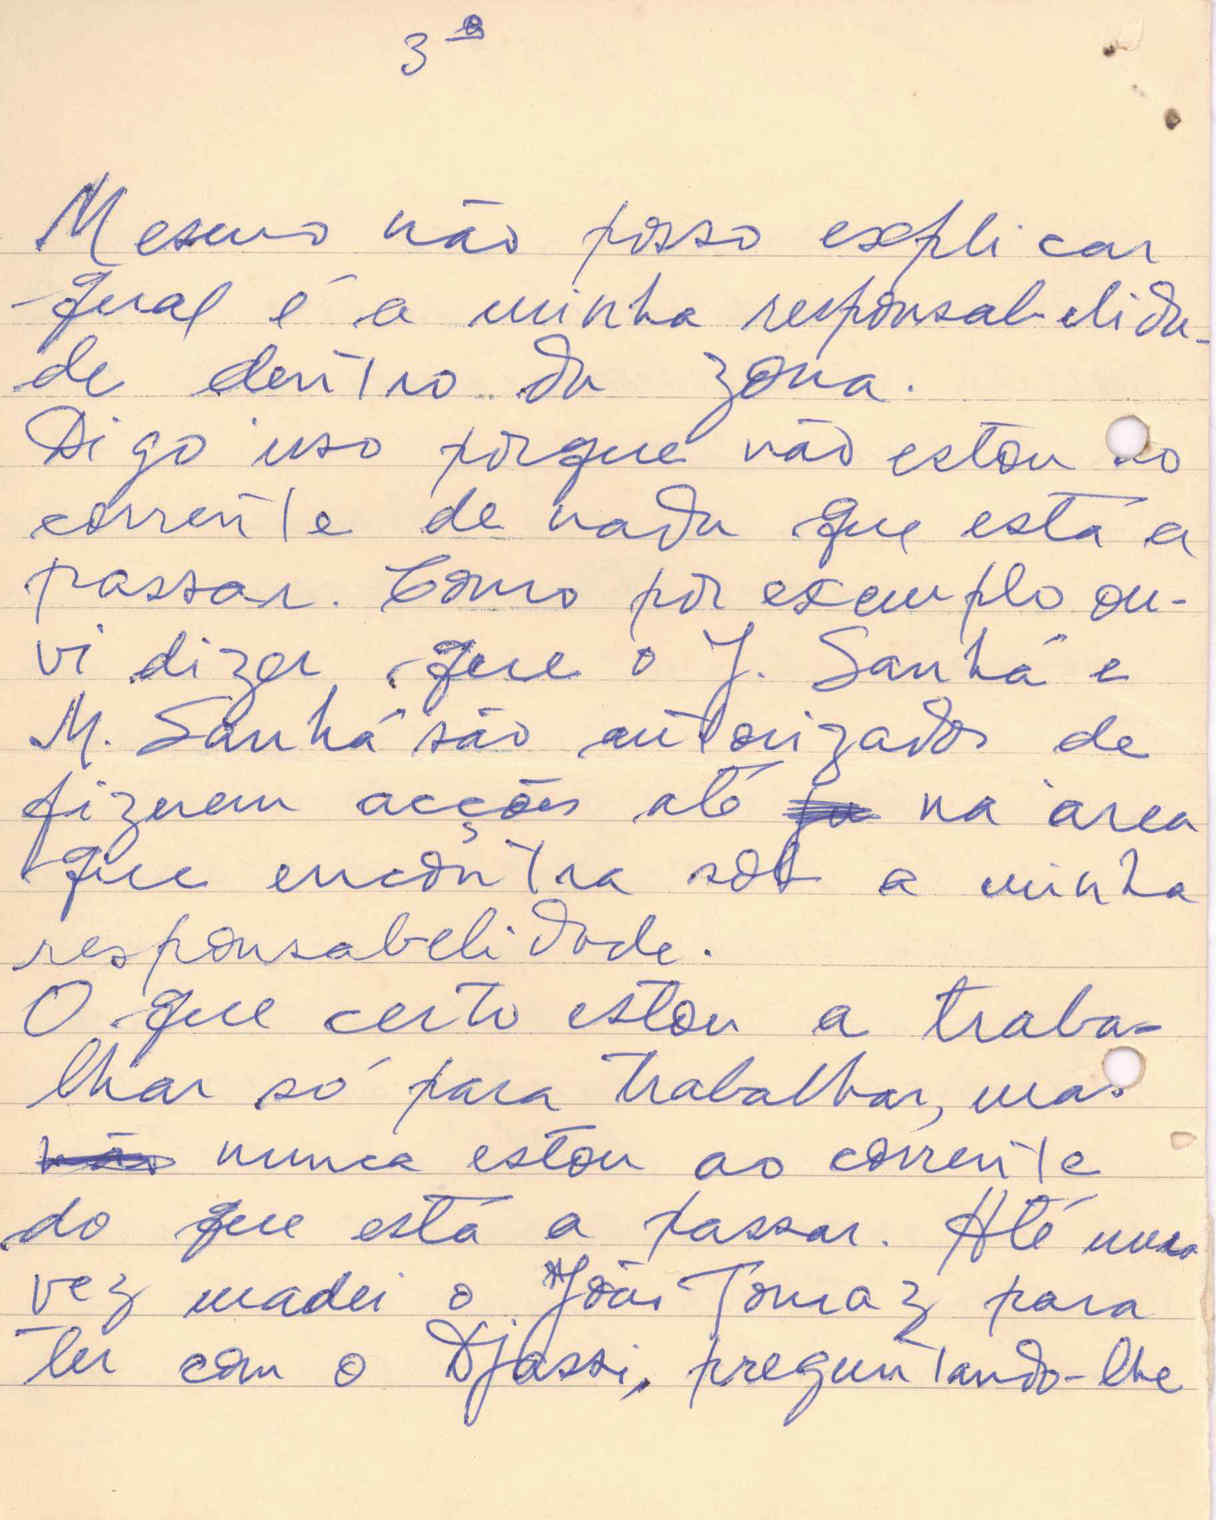 3º
Mesmo não posso explicar
qual é a minha responsabelida-
de dentro da zona.
Digo isso porque não estou ao
corrente de nada que está a
passar. Como por exemplo ou-
vi dizer que o J. Sanhá e
M. Sanhá são autorizados de
fizerem acções até na área
que encontra sob a minha
responsabelidade.
O que certo estou a traba-
lhar só para trabalhar, mas
não nunca estou ao corrente
do que está a passar. Até uma
vez madei o João Tomaz para
ter com o Djassi, preguntando-lhe